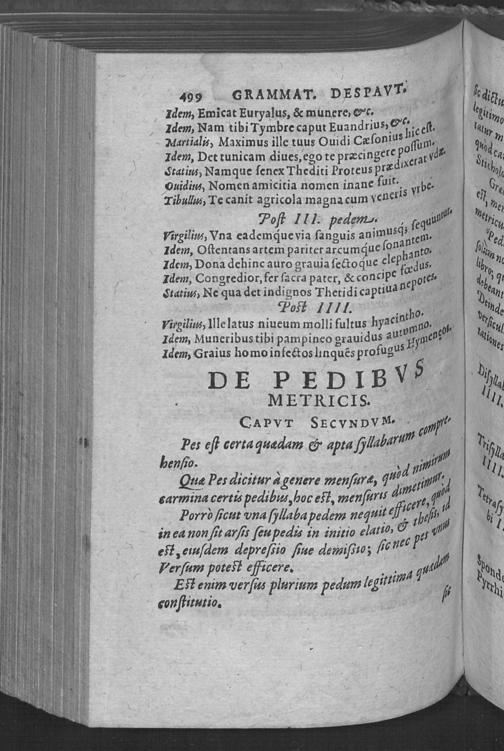 499 GRAMMAT. DESPAVT.
Idem, Emicat Euryalus, & munere, &c.
Idem, Nam tibi Tymbre caput Euandrius, &c.
Martialis, Maximus ille tuus Ouidi Cæsonius hic est.
Idem, Det tunicam diues, ego te præcingere possum.
Statius, Namque senex Thediti Proteus prædixerat vdæ.
Ouidius, Nomen amicitia nomen inane fuit.
Tibullus, Te canit agricola magna cum veneris vrbe.
Post III. pedem.
Virgilius, Vna eademque via sanguis animusq́; sequuntur.
Idem, Ostentans artem pariter arcumque sonantem.
Idem, Dona dehinc auro grauia sectoque elephanto.
Idem, Congredior, fer sacra pater, & concipe fœdus.
Statius, Ne qua det indignos Thetidi captiua nepotes.
Post IIII.
Virgilius, Ille latus niueum molli fultus hyacintho.
Idem, Muneribus tibi pampineo grauidus autumno.
Idem, Graius homo infectos linquẽs profugus Hymenęos.
DE PEDIBVS
METRICIS.
CAPVT SECVNDVM.
Pes est certa quædam & apta syllabarum compre-
hensio.
Quæ Pes dicitur à genere mensuræ, quòd nimirum
carmina certis pedibus, hoc est, mensuris dimetimur.
Porrò sicut vna syllaba pedem nequit efficere, quòd
in ea non sit arsis seu pedis in initio elatio, & thesis, id
est, eiusdem depressio siue demissio; sic nec pes vnus
Versum potest efficere.
Est enim versus plurium pedum legittima quædam
constitutio.
sit